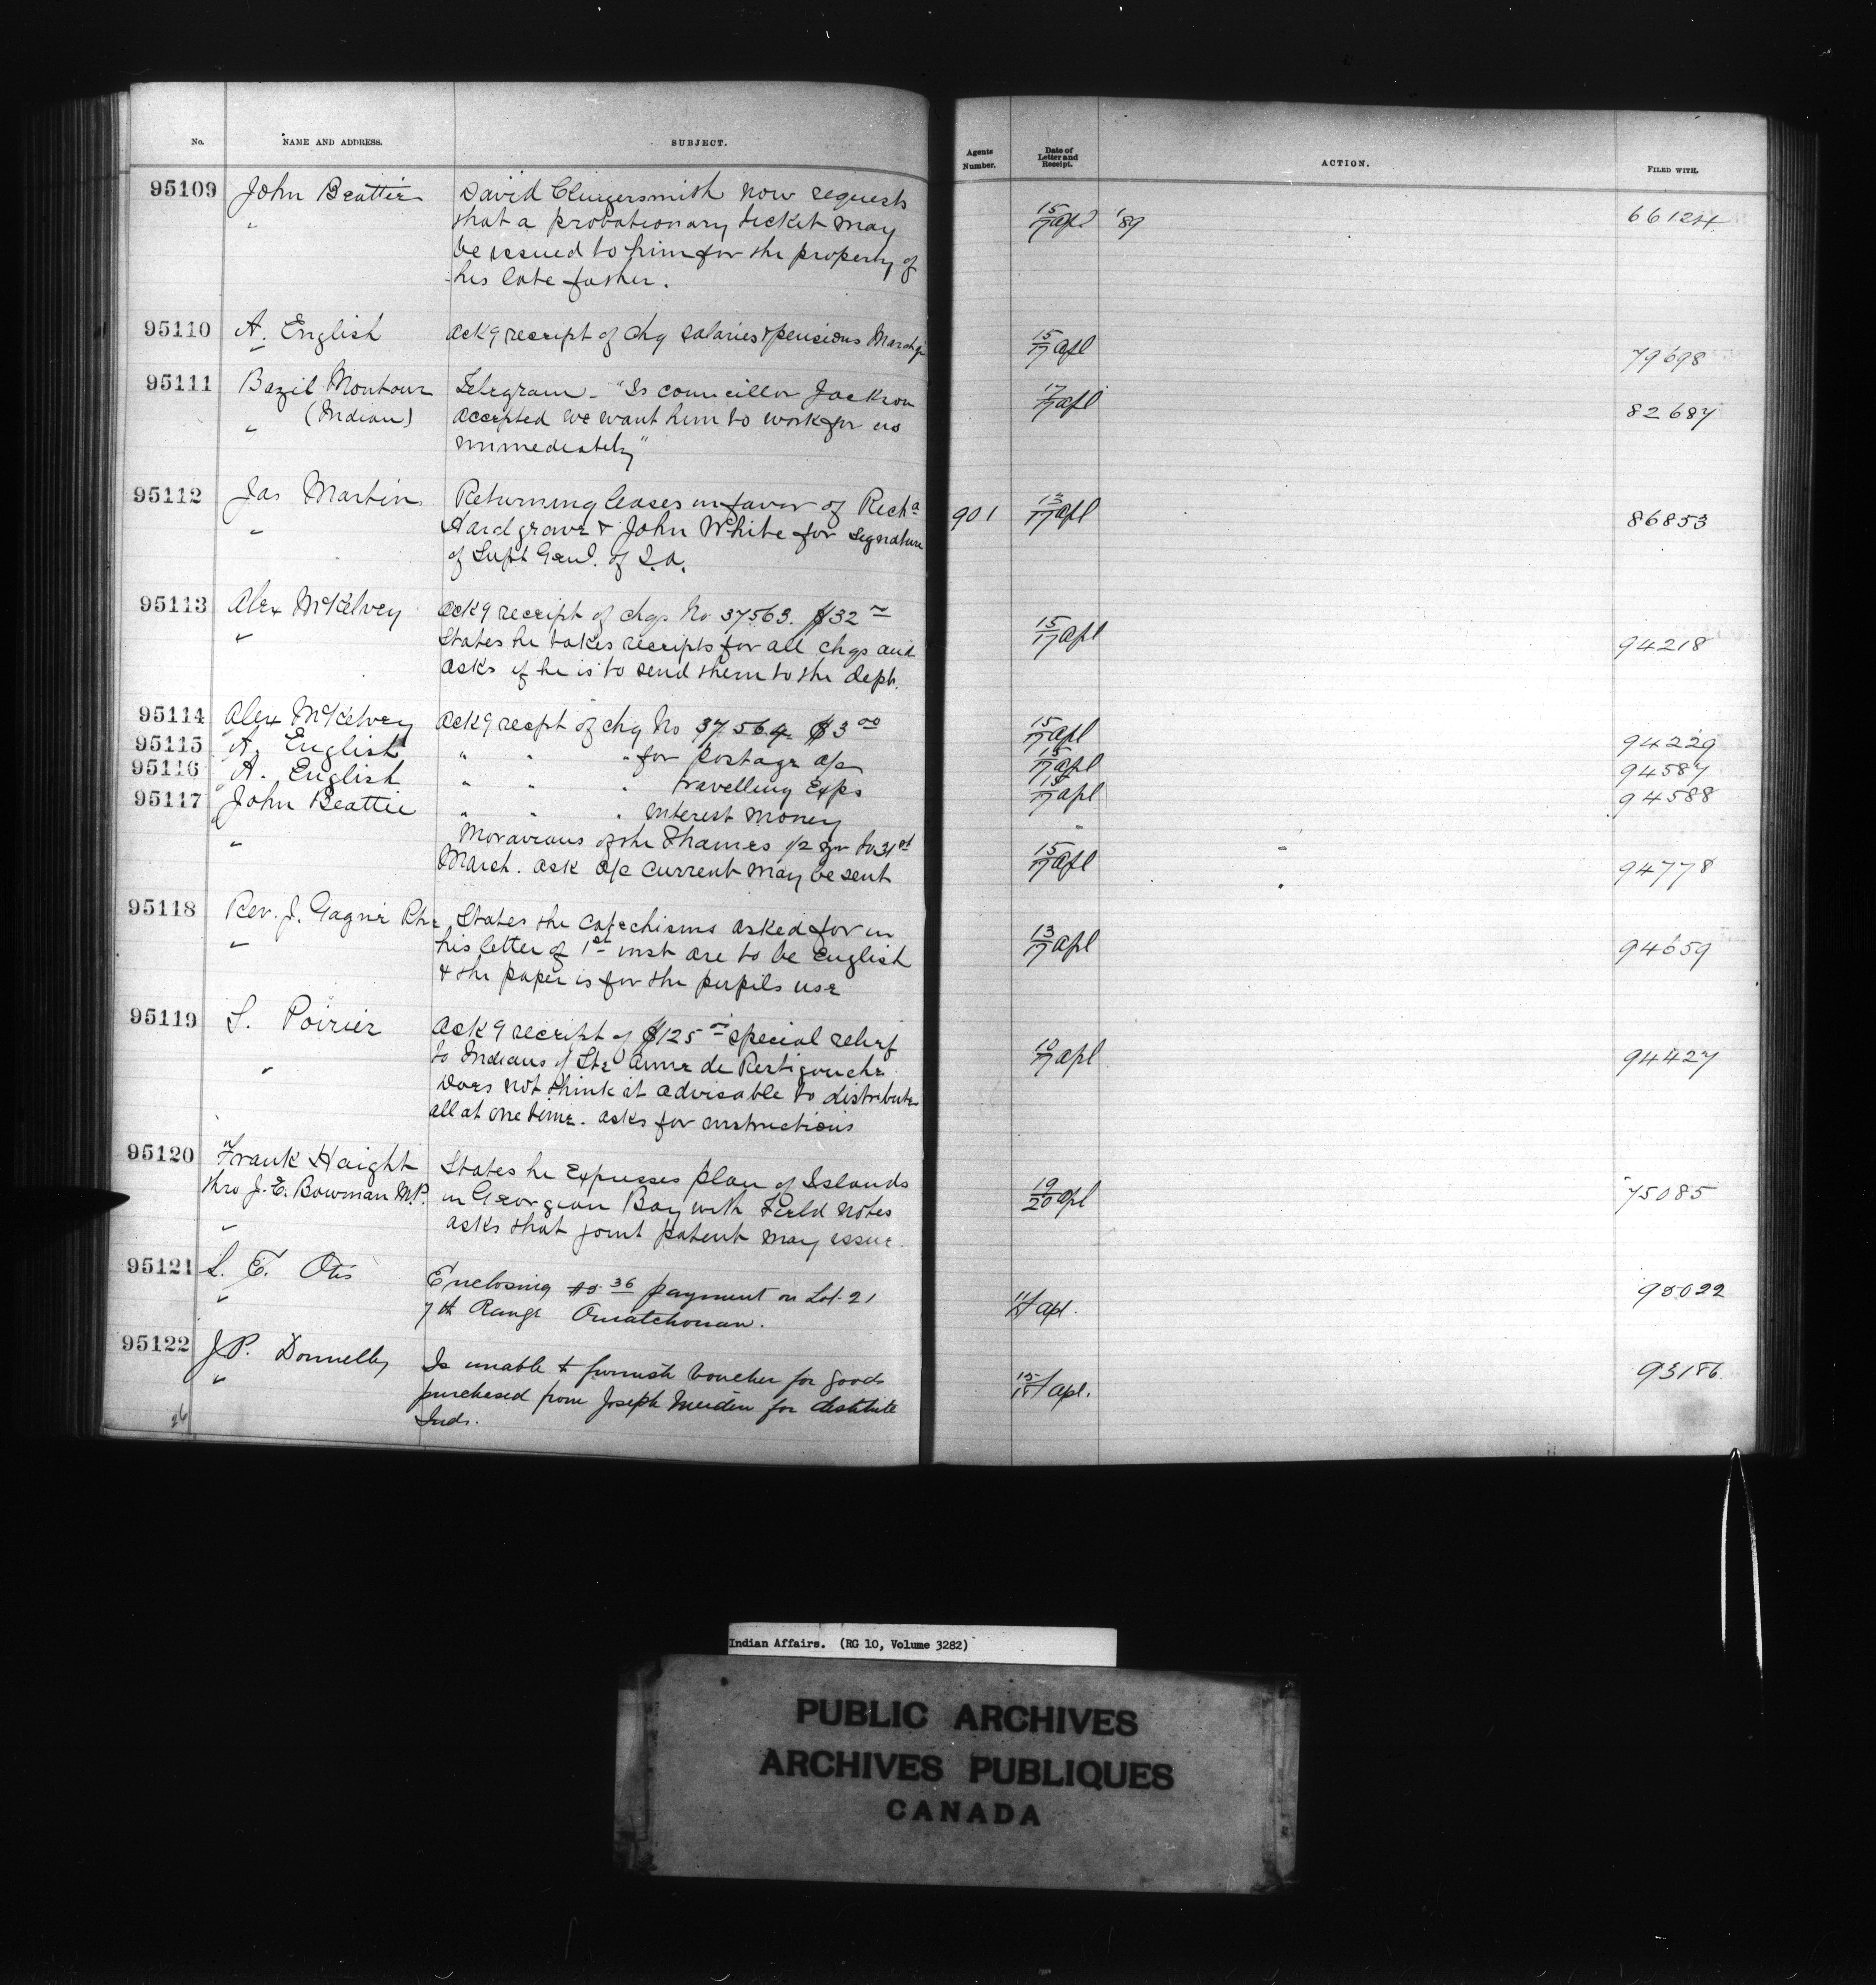 No. NAME AND ADDRESS. SUBJECT. Agents Number. Date of Letter and Receipt. ACTION. FILED WITH.
95109 John Beattie David Clingersmith now requests
" that a probationary ticket may 15/17 apl '89 66124
be issued to him for the property of
his late father.
95110 A. English ack g receipt of chq salaries & pensions March 15/17 apl 79698
95111 Bazil Montour Telegram - "Is councillor Jackson 17/17 apl 82687
(Indian) accepted we want him to work for us
" immediately"
95112 Jas Martin Returning leases in favor of Richd 901 13/17 apl 86853
" Hardgrove & John White for signature
of Supt Genl. of I.A.
95113 Alex McKelvey ack g receipt of chqs No 37563. $32 15/17 apl 94218
" States he takes receipts for all chqs and
asks if he is to send them to the dept.
95114 Alex McKelvey ack g recpt of chq No 37564 $3 00 15/17 apl 94229
95115 A. English " " " for Postage a/c 15/17 apl 94587
95116 A. English " " " travelling Exps 15/17 apl 94588
95117 John Beattie " " " Interest money
" Moravians of the Thames 1/2 yr to 31st 15/17 apl 94778
March. ask a/c current may be sent
95118 Rev. J. Gagné Ptre States the catechisms asked for in
" his letter of 1st inst are to be English 13/17 apl 94659
& the paper is for the pupils use
95119 L. Poirier ack g receipt of $125 special relief
" to Indians of Ste Anne de Restigouche 10/17 apl 94427
Does not think it advisable to distribute
all at one time. asks for instructions
95120 Frank Haight States he Expresses plan of Islands
thro J. E. Bowman M.P. in Georgian Bay with Field notes 19/20 apl 75085
" asks that joint patent may issue.
95121 L. E. Otis Enclosing $5 36 payment on Lot 21 apl. 95022
" 7th Range Ouiatchouan.
95122 J.P. Donnelly Is unable to furnish voucher for goods 15/18 apl. 93186
" purchased from Joseph for destitute
Inds.
26
Indian Affairs. (RG 10, Volume 3282)
PUBLIC ARCHIVES
ARCHIVES PUBLIQUES
CANADA